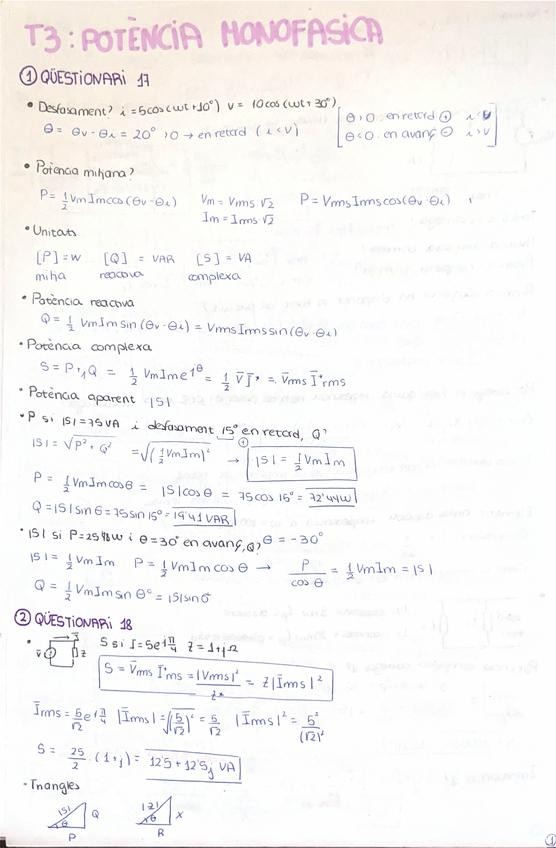 T3: POTÈNCIA MONOFASICA
① QÜESTIONARI 17
• Desfasament? i = 5cos(ωt+10°) v = 10cos(ωt+30°)
θ>0 en retard ⊕ i<v
θ = θv - θi = 20° >0 → en retard (i<v)
θ<0 en avanç ⊖ i>v
• Potència mitjana?
P = ½ VmImcos(θv-θi) Vm = Vrms √2 P = VrmsIrmscos(θv-θi)
Im = Irms √2
• Unitats
[P] = W [Q] = VAR [S] = VA
mitja reactiva complexa
• Potència reactiva
Q = ½ VmIm sin(θv-θi) = VrmsIrmssin(θv-θi)
• Potència complexa
S = P+jQ = ½ VmIm e^jθ = ½ V̄ Ī* = V̄rms Ī*rms
• Potència aparent |S|
• P si |S|=75VA i desfasament 15° en retard, Q?
|S| = √(P²+Q²) = √(½VmIm)² → |S| = ½ VmIm
P = ½ VmIm cosθ = |S|cosθ = 75cos 15° = 72'44W
Q = |S| sinθ = 75sin 15° = 19'41 VAR
• |S| si P=2598W i θ=30° en avanç, Q? θ = -30°
|S| = ½ VmIm P = ½ VmIm cosθ → P/cosθ = ½ VmIm = |S|
Q = ½ VmIm sinθ = |S|sinθ
② QÜESTIONARI 18
• S si I = 5e^jπ/4 Z = 1+jΩ
S = V̄rms Ī*rms = |Vrms|²/Z* = Z|Īrms|²
Īrms = 5/√2 e^jπ/4 |Īrms| = √(5/√2)² = 5/√2 |Īrms|² = 5²/(√2)²
S = 25/2 · (1+j) = 12'5 + 12'5j VA
• Triangles
|S| Q θ P
|Z| X θ R
1